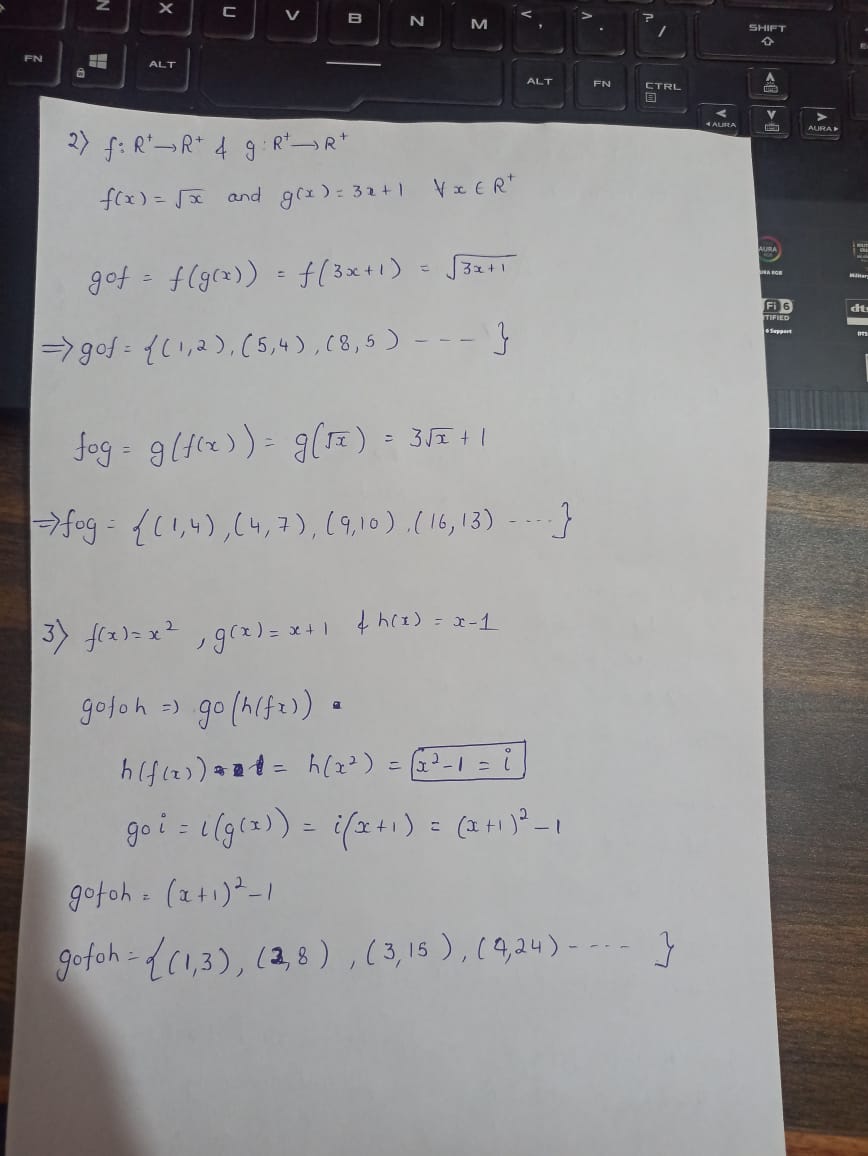 Z X C V B N M < , > . ? / SHIFT
FN ALT ALT FN CTRL
◄ AURA AURA ►
2) f: R⁺→R⁺ & g: R⁺→R⁺
f(x) = √x and g(x) = 3x+1 ∀ x ∈ R⁺
gof = f(g(x)) = f(3x+1) = √(3x+1)
⇒ gof = {(1,2), (5,4), (8,5) ---- }
fog = g(f(x)) = g(√x) = 3√x + 1
⇒ fog = {(1,4), (4,7), (9,10), (16,13) ---- }
3) f(x) = x², g(x) = x+1 & h(x) = x-1
gofoh ⇒ go(h(fx))
h(f(x)) = h(x²) = x²-1 = i
goi = i(g(x)) = i(x+1) = (x+1)²-1
gofoh = (x+1)²-1
gofoh = {(1,3), (2,8), (3,15), (4,24) ---- }
AURA
Fi 6
TIFIED
6 Support
dts